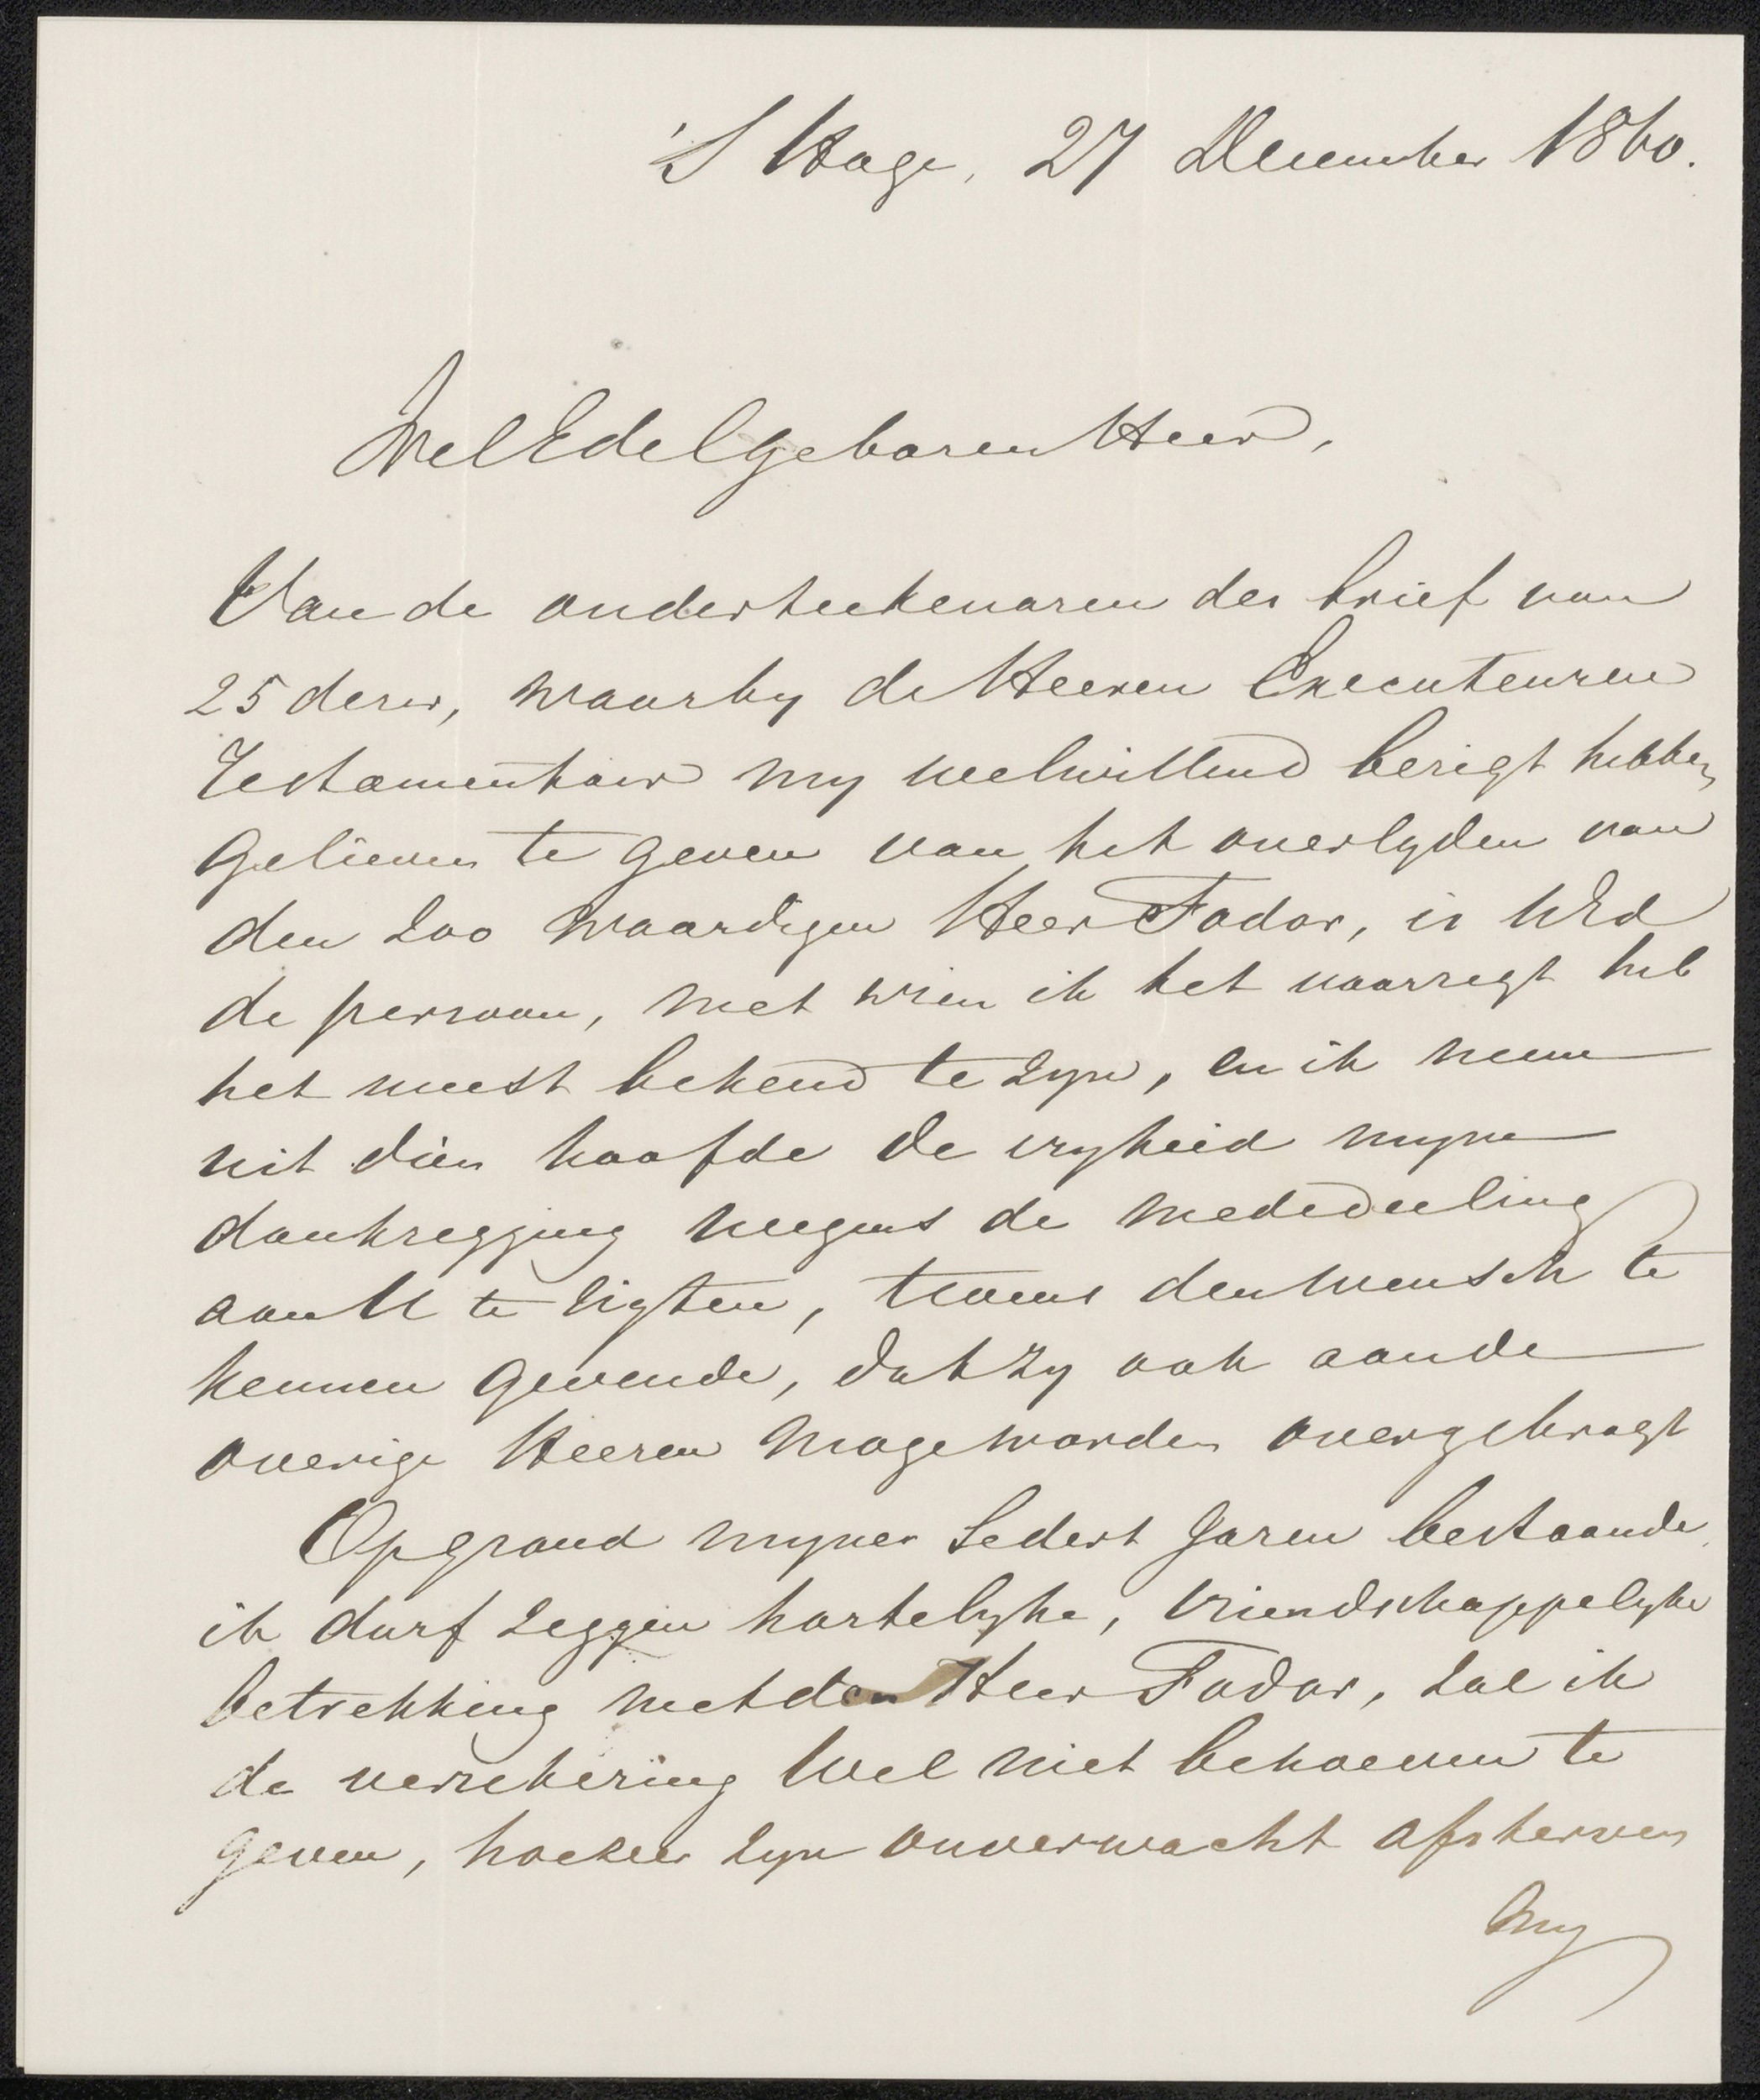 'S Hage, 27 December 1860.
WelEdelgeboren Heer,
Van de onderteekenaren der brief van
25 dezer, waarby de Heeren Executeuren
Testamentair my welwillend berigt hebben
gelieven te geven van het overlyden van
den zoo waardigen Heer Fodor, is UEd
de persoon, met wien ik het voorregt heb
het meest bekend te zyn, en ik neem
uit dien hoofde de vryheid myne
dankzegging wegens de mededeeling
aan U te rigten, tevens den wensch te
kennen gevende, dat zy ook aan de
overige Heeren moge worden overgebragt
Op grond myner sedert Jaren bestaande,
ik durf zeggen hartelyke, vriendschappelyke
betrekking met den Heer Fodor, zal ik
de verzekering wel niet behoeven te
geven, hoezeer zyn onverwacht afsterven
my